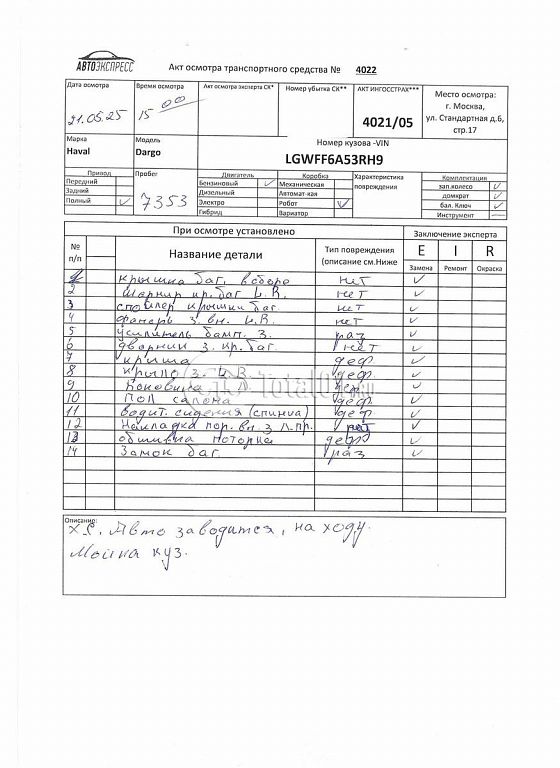 АВТОЭКСПРЕСС
Акт осмотра транспортного средства № 4022
Дата осмотра
21.05.25
Время осмотра
15 00
Акт осмотра эксперта СК*
Номер убытка СК**
АКТ ИНГОССТРАХ***
4021/05
Место осмотра:
г. Москва,
ул. Стандартная д.6,
стр.17
Марка
Haval
Модель
Dargo
Номер кузова -VIN
LGWFF6A53RH9
Привод
Передний
Задний
Полный
Пробег
7353
Двигатель
Бензиновый
Дизельный
Электро
Гибрид
Коробка
Механическая
Автомат-кая
Робот
Вариатор
Характеристика
повреждения
Комплектация
зап.колесо
домкрат
бал. Ключ
Инструмент
При осмотре установлено
Заключение эксперта
№
п/п
Название детали
Тип повреждения
(описание см.Ниже
E I R
Замена Ремонт Окраска
1 крышка баг. в сборе нет
2 Шарнир кр. баг L.R. нет
3 спойлер крышки баг. нет
4 фонарь з. вн. L.R. нет
5 усилитель бамп. З. раз
6 дворник з. кр. баг. нет
7 крыша деф
8 крыло з. L.R. деф.
9 Боковина деф.
10 Пол салона деф.
11 водит. сидения (спинка) деф
12 Накладка пор. вн. з л.пр. нет
13 обшивка потолка деф.
14 Замок баг. раз
Total01.ru
Описание:
х.с. Авто заводится, на ходу.
Мойка куз.